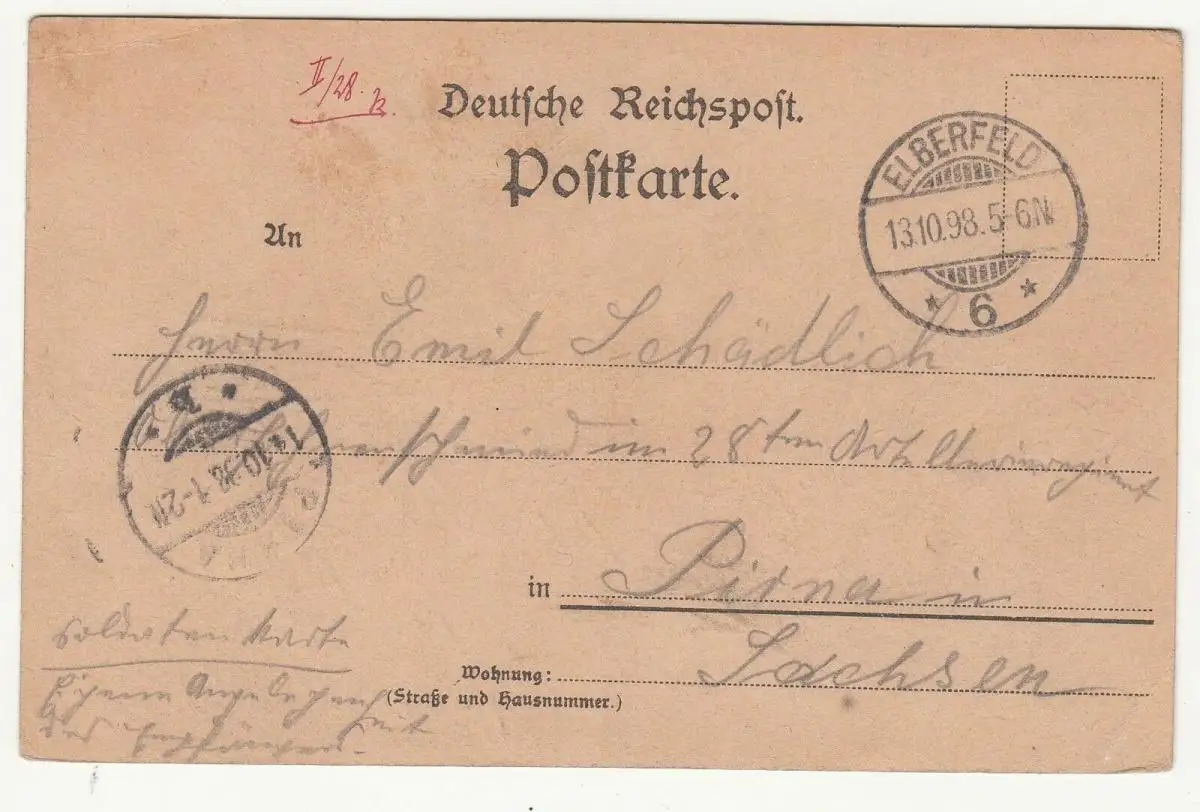 II/28.
Deutsche Reichspost.
Postkarte.
ELBERFELD
13.10.98. 5-6 N.
* 6 *
An
Herrn Emil Schädlich
im 28ten Artillerieregiment
PIRNA
14.10.98. 1-2 N
in Pirna in
Sachsen
Wohnung:
(Straße und Hausnummer.)
Soldaten Karte
Eigene Angelegenheit
des Empfängers.